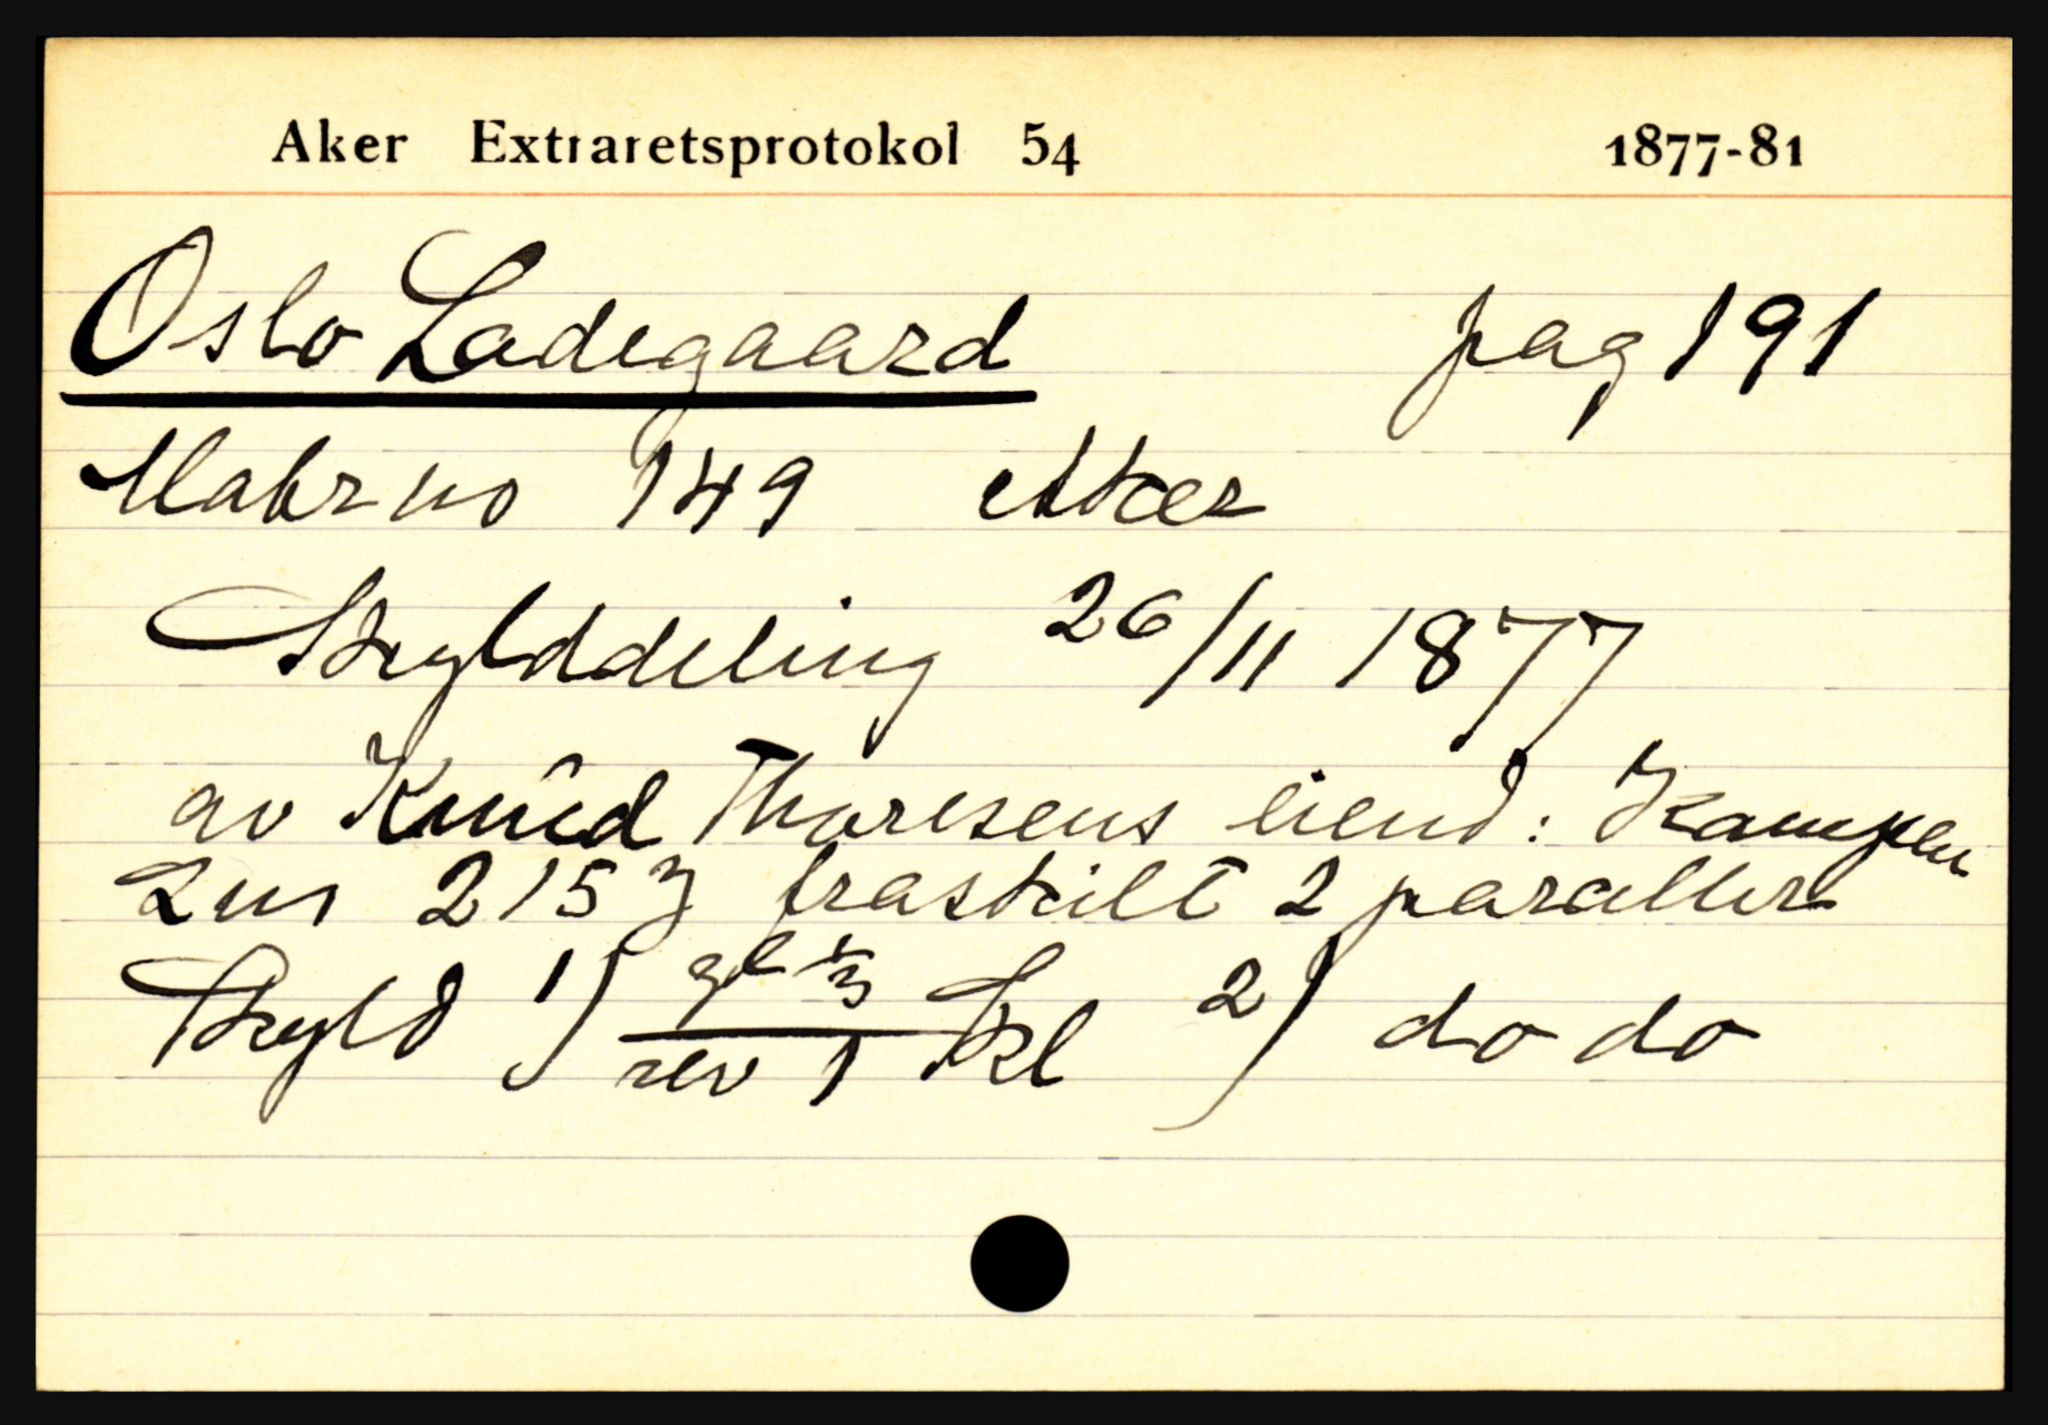 Aker Extraretsprotokol 54 1877-81
Oslo Ladegaard pag 191
Matr no 149 Aker
Skylddeling 26/11 1877
av Knud Thoresens eiend: Kampen
Lnr 215 z fraskilt 2 parceller
Skyld 1) gl 1/3 / rev 1 Skl 2) do do